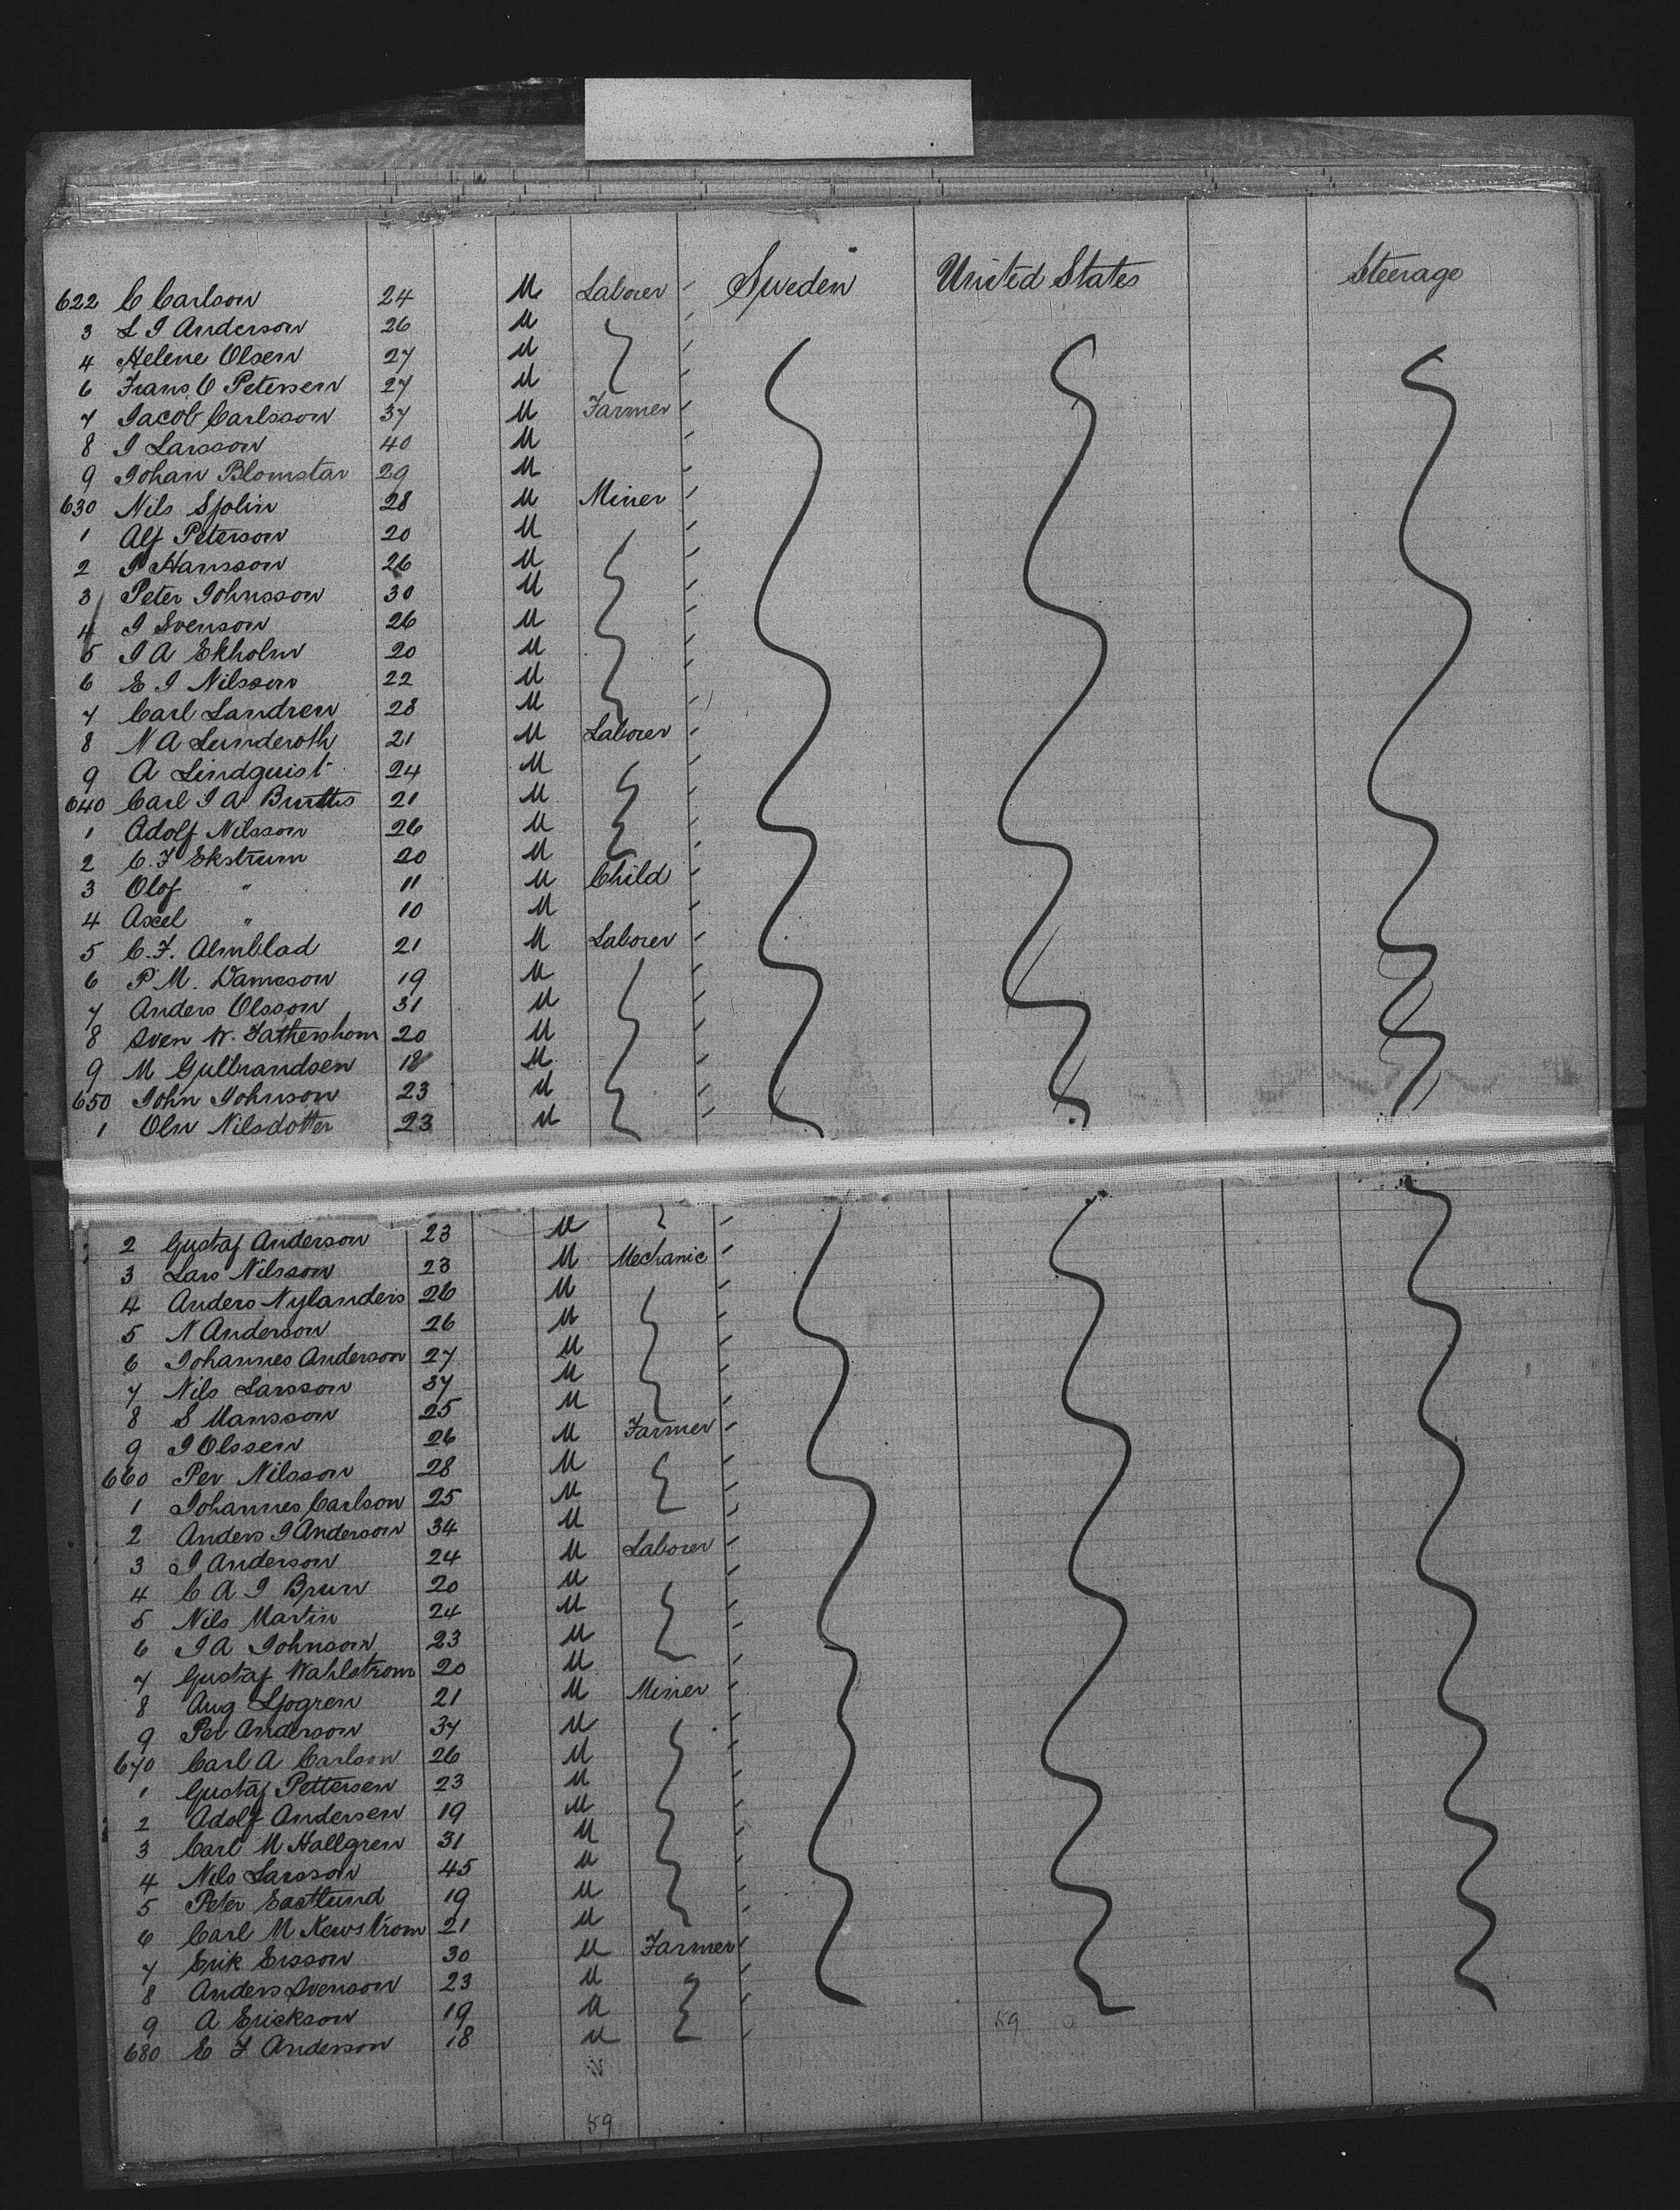 622 C Carlson 24 M Laborer Sweden United States Steerage
3 L I Anderson 26 M
4 Helene Olsen 27 M
6 Frans O Petersen 27 M
7 Jacob Carlsson 37 M Farmer
8 I Larsson 40 M
9 Johan Blomstar 29 M
630 Nils Sjolin 28 M Miner
1 Alf Peterson 20 M
2 I Hansson 26 M
3 Peter Johnsson 30 M
4 I Svenson 26 M
5 I A Ekholm 20 M
6 E I Nilsson 22 M
7 Carl Landren 28 M
8 N A Lunderoth 21 M Laborer
9 A Lindquist 24 M
640 Carl I A 21 M
1 Adolf Nilsson 26 M
2 C. F Ekstrum 20 M
3 Olof " 11 M Child
4 Axel " 10 M
5 C. F. Almblad 21 M Laborer
6 P M. 19 M
7 Anders Olsson 31 M
8 Sven W. 20 M
9 M Gulbrandsen 18 M
650 John Johnson 23 M
1 Nilsdotter 23 M
2 Gustaf Anderson 23 M
3 Lars Nilsson 23 M Mechanic
4 Anders Nylanders 26 M
5 N Anderson 26 M
6 Johannes Anderson 27 M
7 Nils Larsson 37 M
8 S Mansson 25 M
9 I Olssen 26 M Farmer
660 Per Nilsson 28 M
1 Johannes Carlson 25 M
2 Anders I Anderson 34 M
3 I Anderson 24 M Laborer
4 C A I Brun 20 M
5 Nils Martin 24 M
6 I A Johnson 23 M
7 Gustaf Wahlstrom 20 M
8 Aug Sjogren 21 M Miner
9 Per Anderson 37 M
670 Carl A Carlson 26 M
1 Gustaf Pettersen 23 M
2 Adolf Andersen 19 M
3 Carl M Hallgren 31 M
4 Nils Larsson 45 M
5 Peter Eastlund 19 M
6 Carl M Newstrom 21 M
7 Erik Ersson 30 M Farmer
8 Anders Svenson 23 M
9 A Erickson 19 M
680 E F Anderson 18 M
59
59